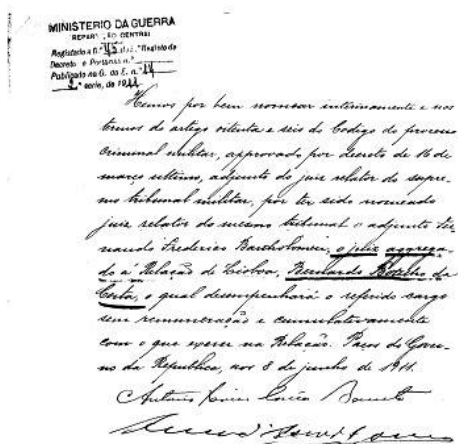 MINISTERIO DA GUERRA
REPARTIÇÃO CENTRAL
Registado a fl. 45 do L.º Registo de
Decreto e Portarias n.º
Publicado na O. do E. n.º 14
2.ª serie, de 1911
Hemos por bem nomear interinamente e nos
termos do artigo oitenta e seis do Codigo do processo
criminal militar, approvado por decreto de 16 de
março ultimo, adjunto do juiz relator do supre-
mo tribunal militar, por ter sido nomeado
juiz relator do mesmo tribunal o adjunto Fer-
nando Frederico Bartholomeu, o juiz aggrega-
do á Relação de Lisboa, Bernardo Botelho da
Costa, o qual desempenhará o referido cargo
sem remuneração e cumulativamente
com o que exerce na Relação. Paços do Gover-
no da Republica, aos 8 de junho de 1911.
Antonio Xavier Correia Barreto